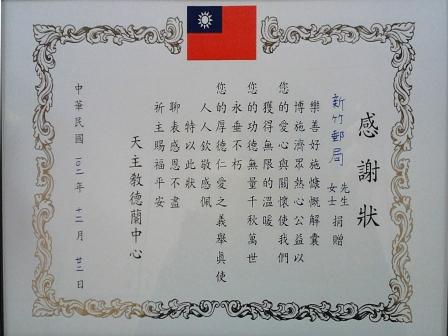 感謝狀
新竹郵局 先生 女士 捐贈
樂善好施慷慨解囊
博施濟眾熱心公益以
您的愛心與關懷使我們
獲得無限的溫暖
您的功德無量千秋萬世
永垂不朽
您的厚德仁愛之義舉真使
人人欽敬感佩
特以此狀
聊表感恩不盡
祈主賜福平安
天主教德蘭中心
中華民國 一〇二年 十二月 廿三日